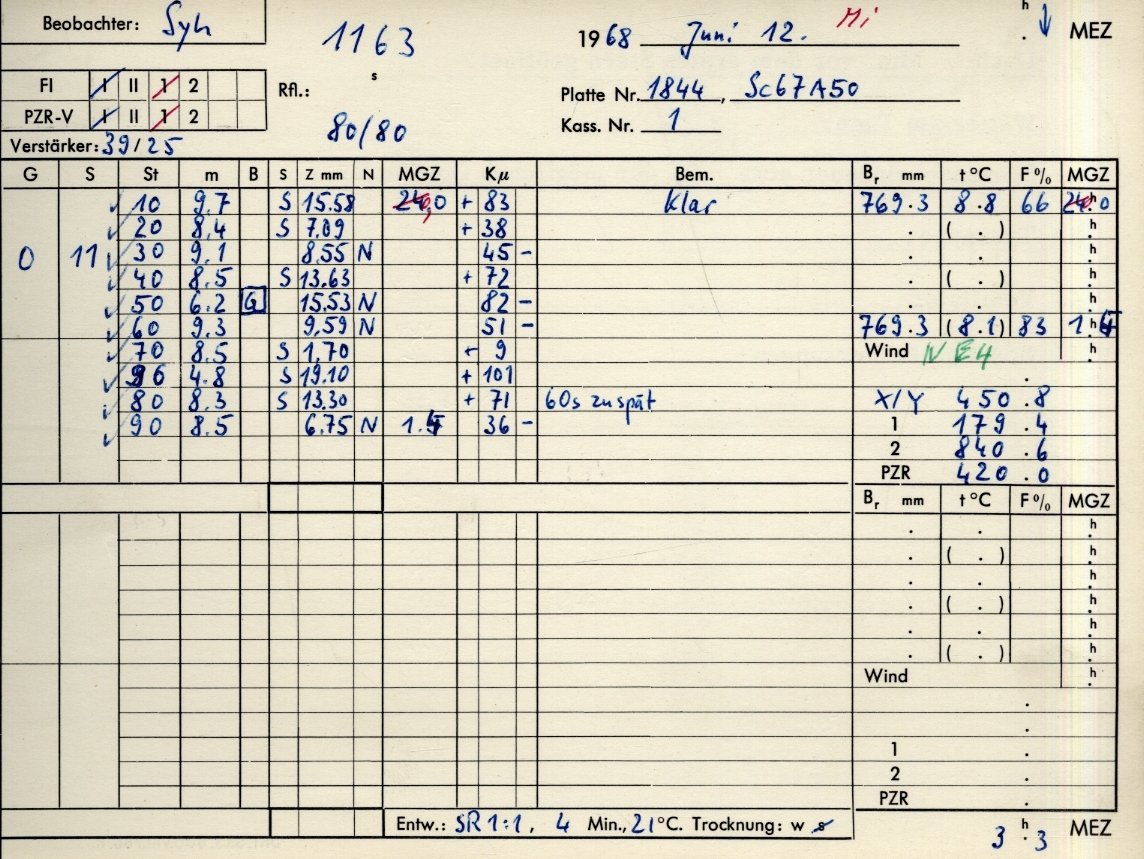 Beobachter: Syh
1163
1968 Juni 12. Mi
h . MEZ
FI I II 1 2
PZR-V I II 1 2
Rfl.: s
80/80
Platte Nr. 1844, Sc67A50
Kass. Nr. 1
Verstärker: 39/25
G S St m B S Z mm N MGZ Kμ Bem. Br mm t °C F % MGZ
10 9.7 S 15.58 24.0 + 83 klar 769.3 8.8 66 24.h0
20 8.4 S 7.09 + 38 . ( . ) .h
0 11 30 9.1 8.55 N 45 - . . .h
40 8.5 S 13.63 + 72 . ( . ) .h
50 6.2 G 15.53 N 82 - . . .h
60 9.3 9.59 N 51 - 769.3 (8.1) 83 1.h
70 8.5 S 1.70 + 9 Wind NE4 .h
96 4.8 S 19.10 + 101 .
80 8.3 S 13.30 + 71 60s zu spät X/Y 450.8
90 8.5 6.75 N 1. 36 - 1 179.4
2 840.6
PZR 420.0
Br mm t °C F % MGZ
. . .h
. ( . ) .h
. . .h
. ( . ) .h
. . .h
. ( . ) .h
Wind .h
.
.
1 .
2 .
PZR .
Entw.: SR 1:1, 4 Min., 21 °C. Trocknung: w s
3 h . 3 MEZ